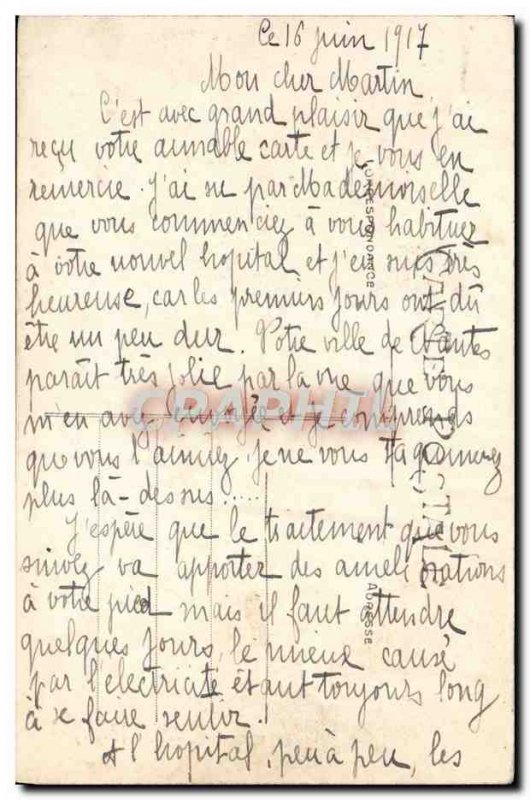 Ce 16 juin 1917
Mon cher Martin,
C'est avec grand plaisir que j'ai
reçu votre aimable carte et je vous en
remercie. J'ai su par Mademoiselle
que vous commenciez à vous habituer
à votre nouvel hopital et j'en suis très
heureuse, car les premiers jours ont dû
être un peu durs. Votre ville de Nantes
paraît très jolie par la vue que vous
m'en avez envoyée et je comprends
que vous l'aimiez, je ne vous taquinerez
plus là-dessus.....
J'espère que le traitement que vous
suivez va apporter des améliorations
à votre pied mais il faut attendre
quelques jours, le mieux causé
par l'électricité étant toujours long
à se faire sentir.
A l'hopital, peu à peu, les
CORRESPONDANCE
CARTE POSTALE
ADRESSE
CPAPHIL